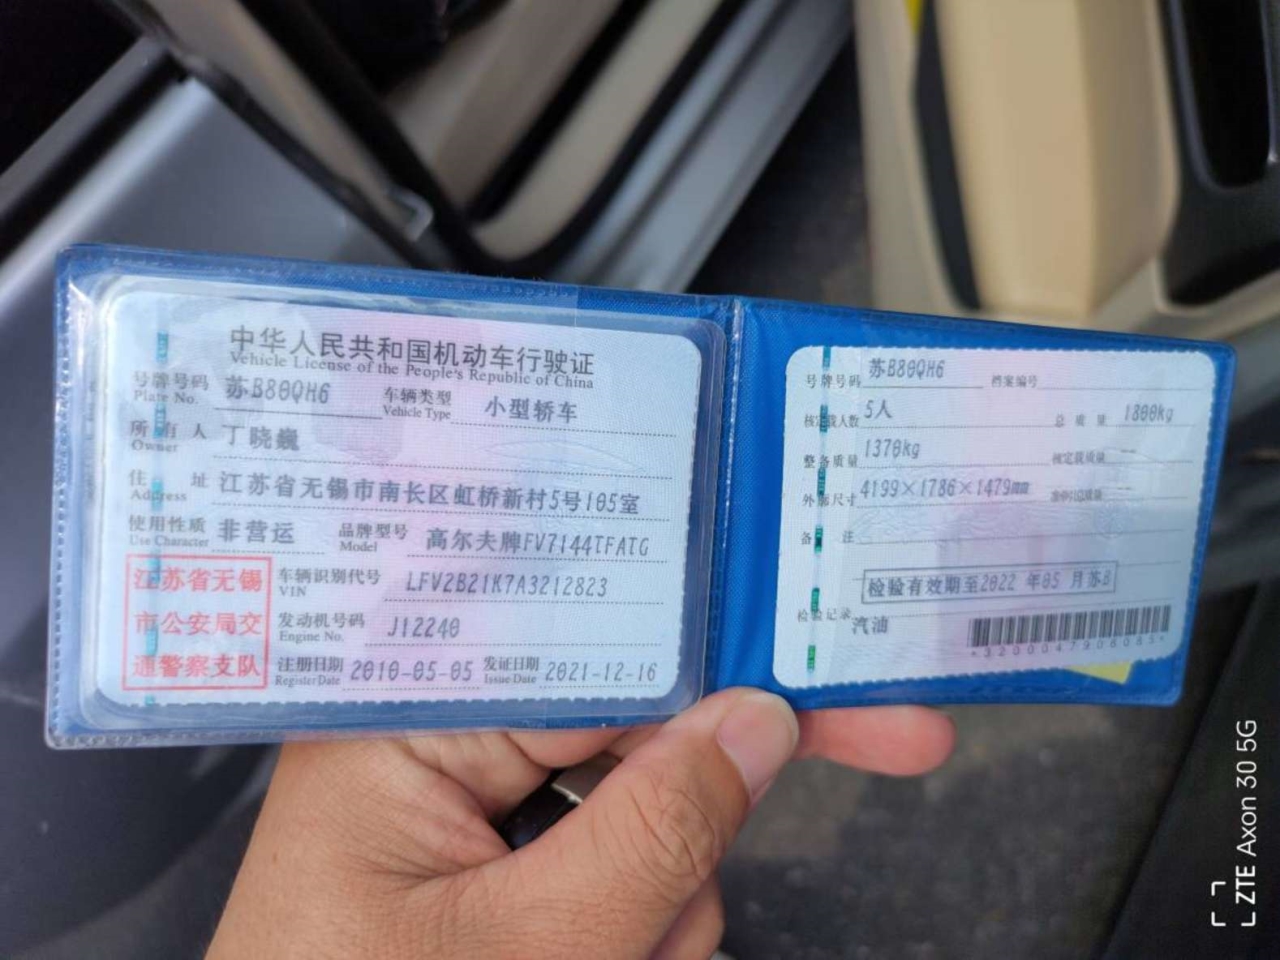 中华人民共和国机动车行驶证
Vehicle License of the People's Republic of China
号牌号码 苏B80QH6 车辆类型 小型轿车
Plate No. Vehicle Type
所有人 丁晓巍
Owner
住址 江苏省无锡市南长区虹桥新村5号105室
Address
使用性质 非营运 品牌型号 高尔夫牌FV7144TFATG
Use Character Model
江苏省无锡
市公安局交
通警察支队
车辆识别代号 LFV2B21K7A3212823
VIN
发动机号码 J12240
Engine No.
注册日期 2010-05-05 发证日期 2021-12-16
Register Date Issue Date
号牌号码 苏B80QH6 档案编号
核定载人数 5人 总质量 1800kg
整备质量 1370kg 核定载质量 --
外廓尺寸 4199×1786×1479mm 准牵引总质量 --
备注
检验有效期至2022年05月苏B
检验记录
汽油
*3200047906085*
ZTE Axon 30 5G